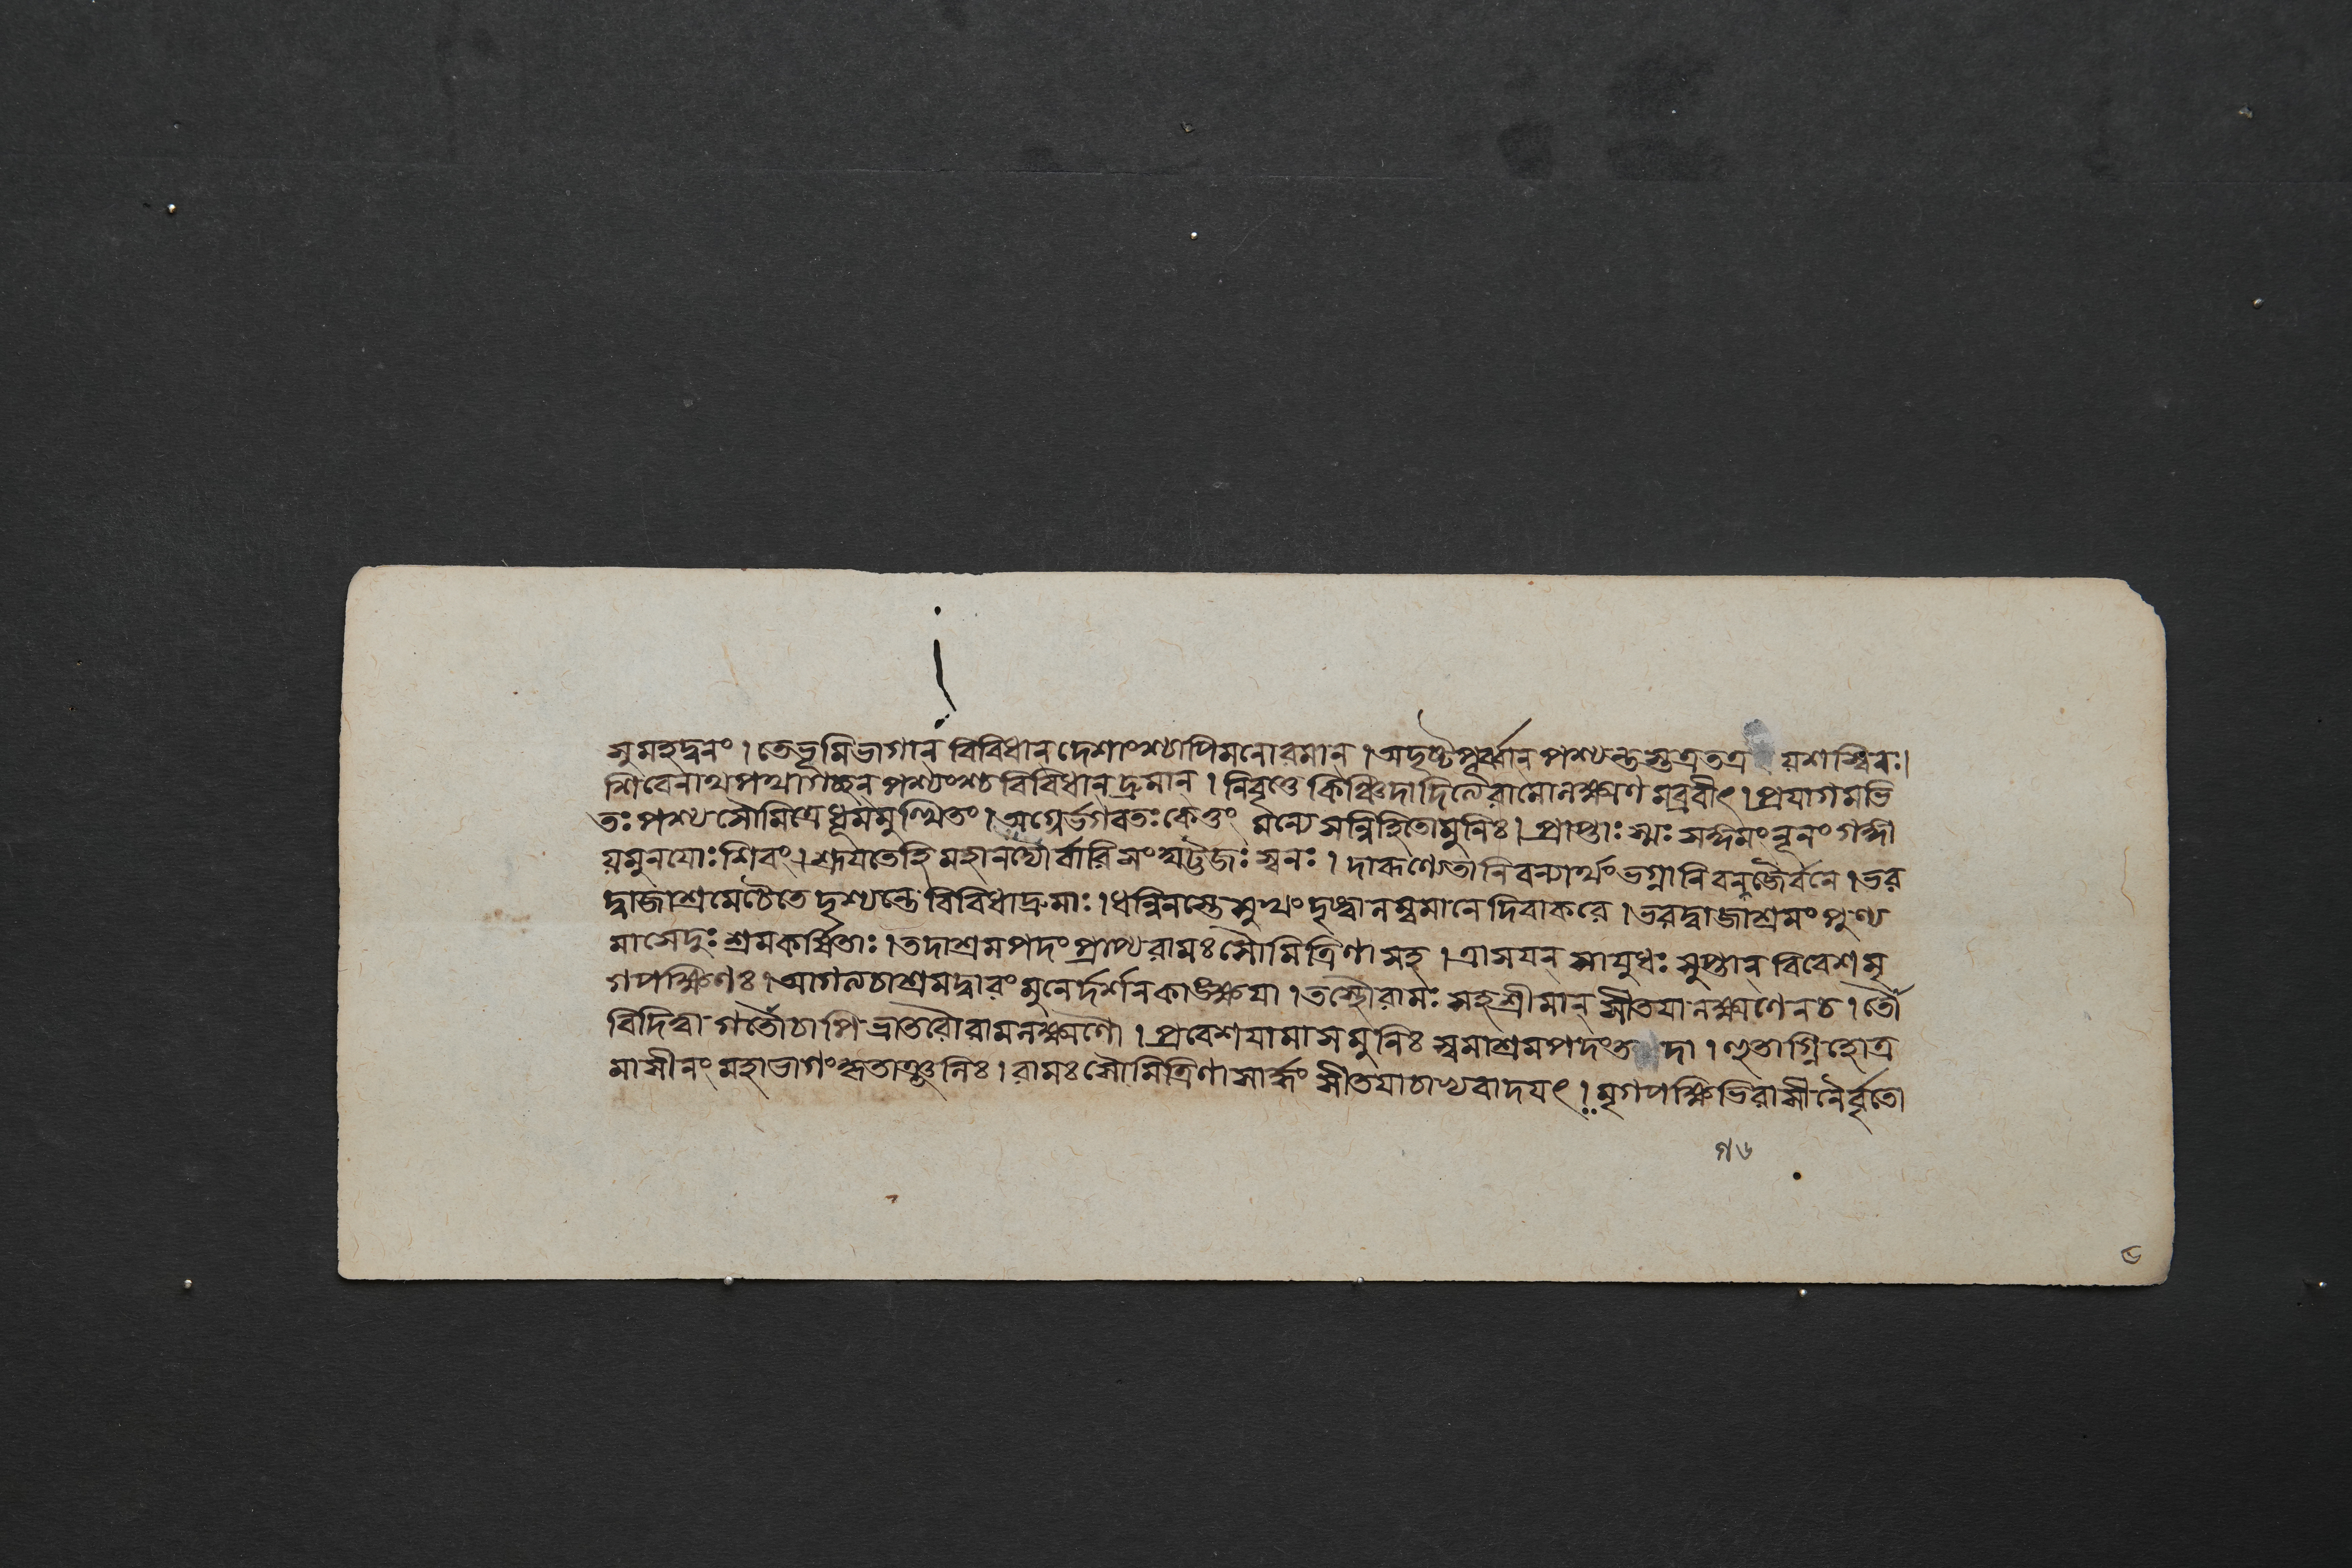 সুমহদ্বনং। তে ভূমিভাগান্ বিবিধান্ দেশাংশ্চাপি মনোরমান্। অদৃষ্টপূর্ব্বান্ পশ্যন্তস্তত্র তত্র যশস্বিনঃ।
শিবেনাথ পথা গচ্ছন্ পশ্যংশ্চ বিবিধান্ দ্রুমান্। নিবৃত্তে কিঞ্চিদাদিত্যে রামো লক্ষ্মণমব্রবীৎ। প্রয়াগমভি
তঃ পশ্য সৌমিত্রে ধূমমুত্থিতং। অগ্নের্ভগবতঃ কেতুং মন্যে সন্নিহিতো মুনিঃ। প্রাপ্তাঃ স্মঃ সঙ্গমং নূনং গঙ্গা
যমুনয়োঃ শিবং। শ্রূয়তে হি মহানদ্যোর্বারিসংঘট্টজঃ স্বনঃ। দারূণ্যেতানি বন্যার্থং ভগ্নানি বনজৈর্বনে। ভর
দ্বাজাশ্রমে চৈতে দৃশ্যন্তে বিবিধা দ্রুমাঃ। ধন্বিনস্তে সুখং দৃষ্ট্বা লম্বমানে দিবাকরে। ভরদ্বাজাশ্রমং পুণ্য
মাসেদুঃ শ্রমকর্ষিতাঃ। তদাশ্রমপদং প্রাপ্য রামঃ সৌমিত্রিণা সহ। ত্রাসয়ন্ সায়ুধঃ সুপ্তান্ বিবেশ মৃ
গপক্ষিণঃ। আগত্য চাশ্রমদ্বারং মুনের্দর্শনকাঙ্ক্ষয়া। তস্থৌ রামঃ সহ শ্রীমান্ সীতয়া লক্ষ্মণেন চ। তৌ
বিদিত্বা গতৌ চাপি ভ্রাতরৌ রামলক্ষ্মণৌ। প্রবেশয়ামাস মুনিঃ স্বমাশ্রমপদং তদা। হুতাগ্নিহোত্র
মাসীনং মহাভাগং কৃতাঞ্জলিঃ। রামঃ সৌমিত্রিণা সার্দ্ধং সীতয়া চাভ্যবাদয়ৎ। মৃগপক্ষিভিরাসীনৈর্বৃতো